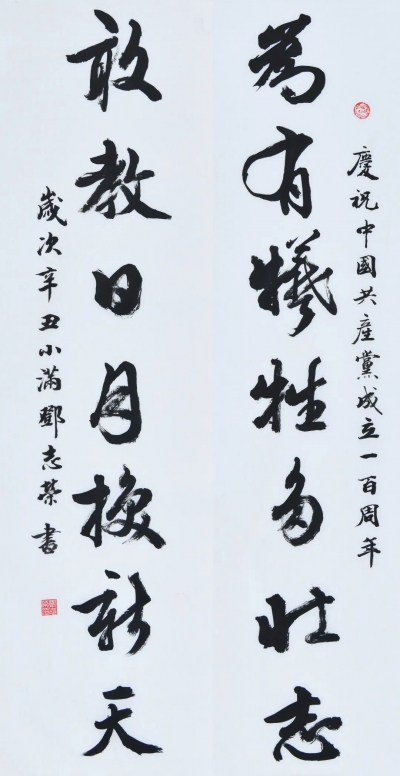 慶祝中國共產黨成立一百周年
為有犧牲多壯志
敢教日月換新天
歲次辛丑小滿鄧志榮書